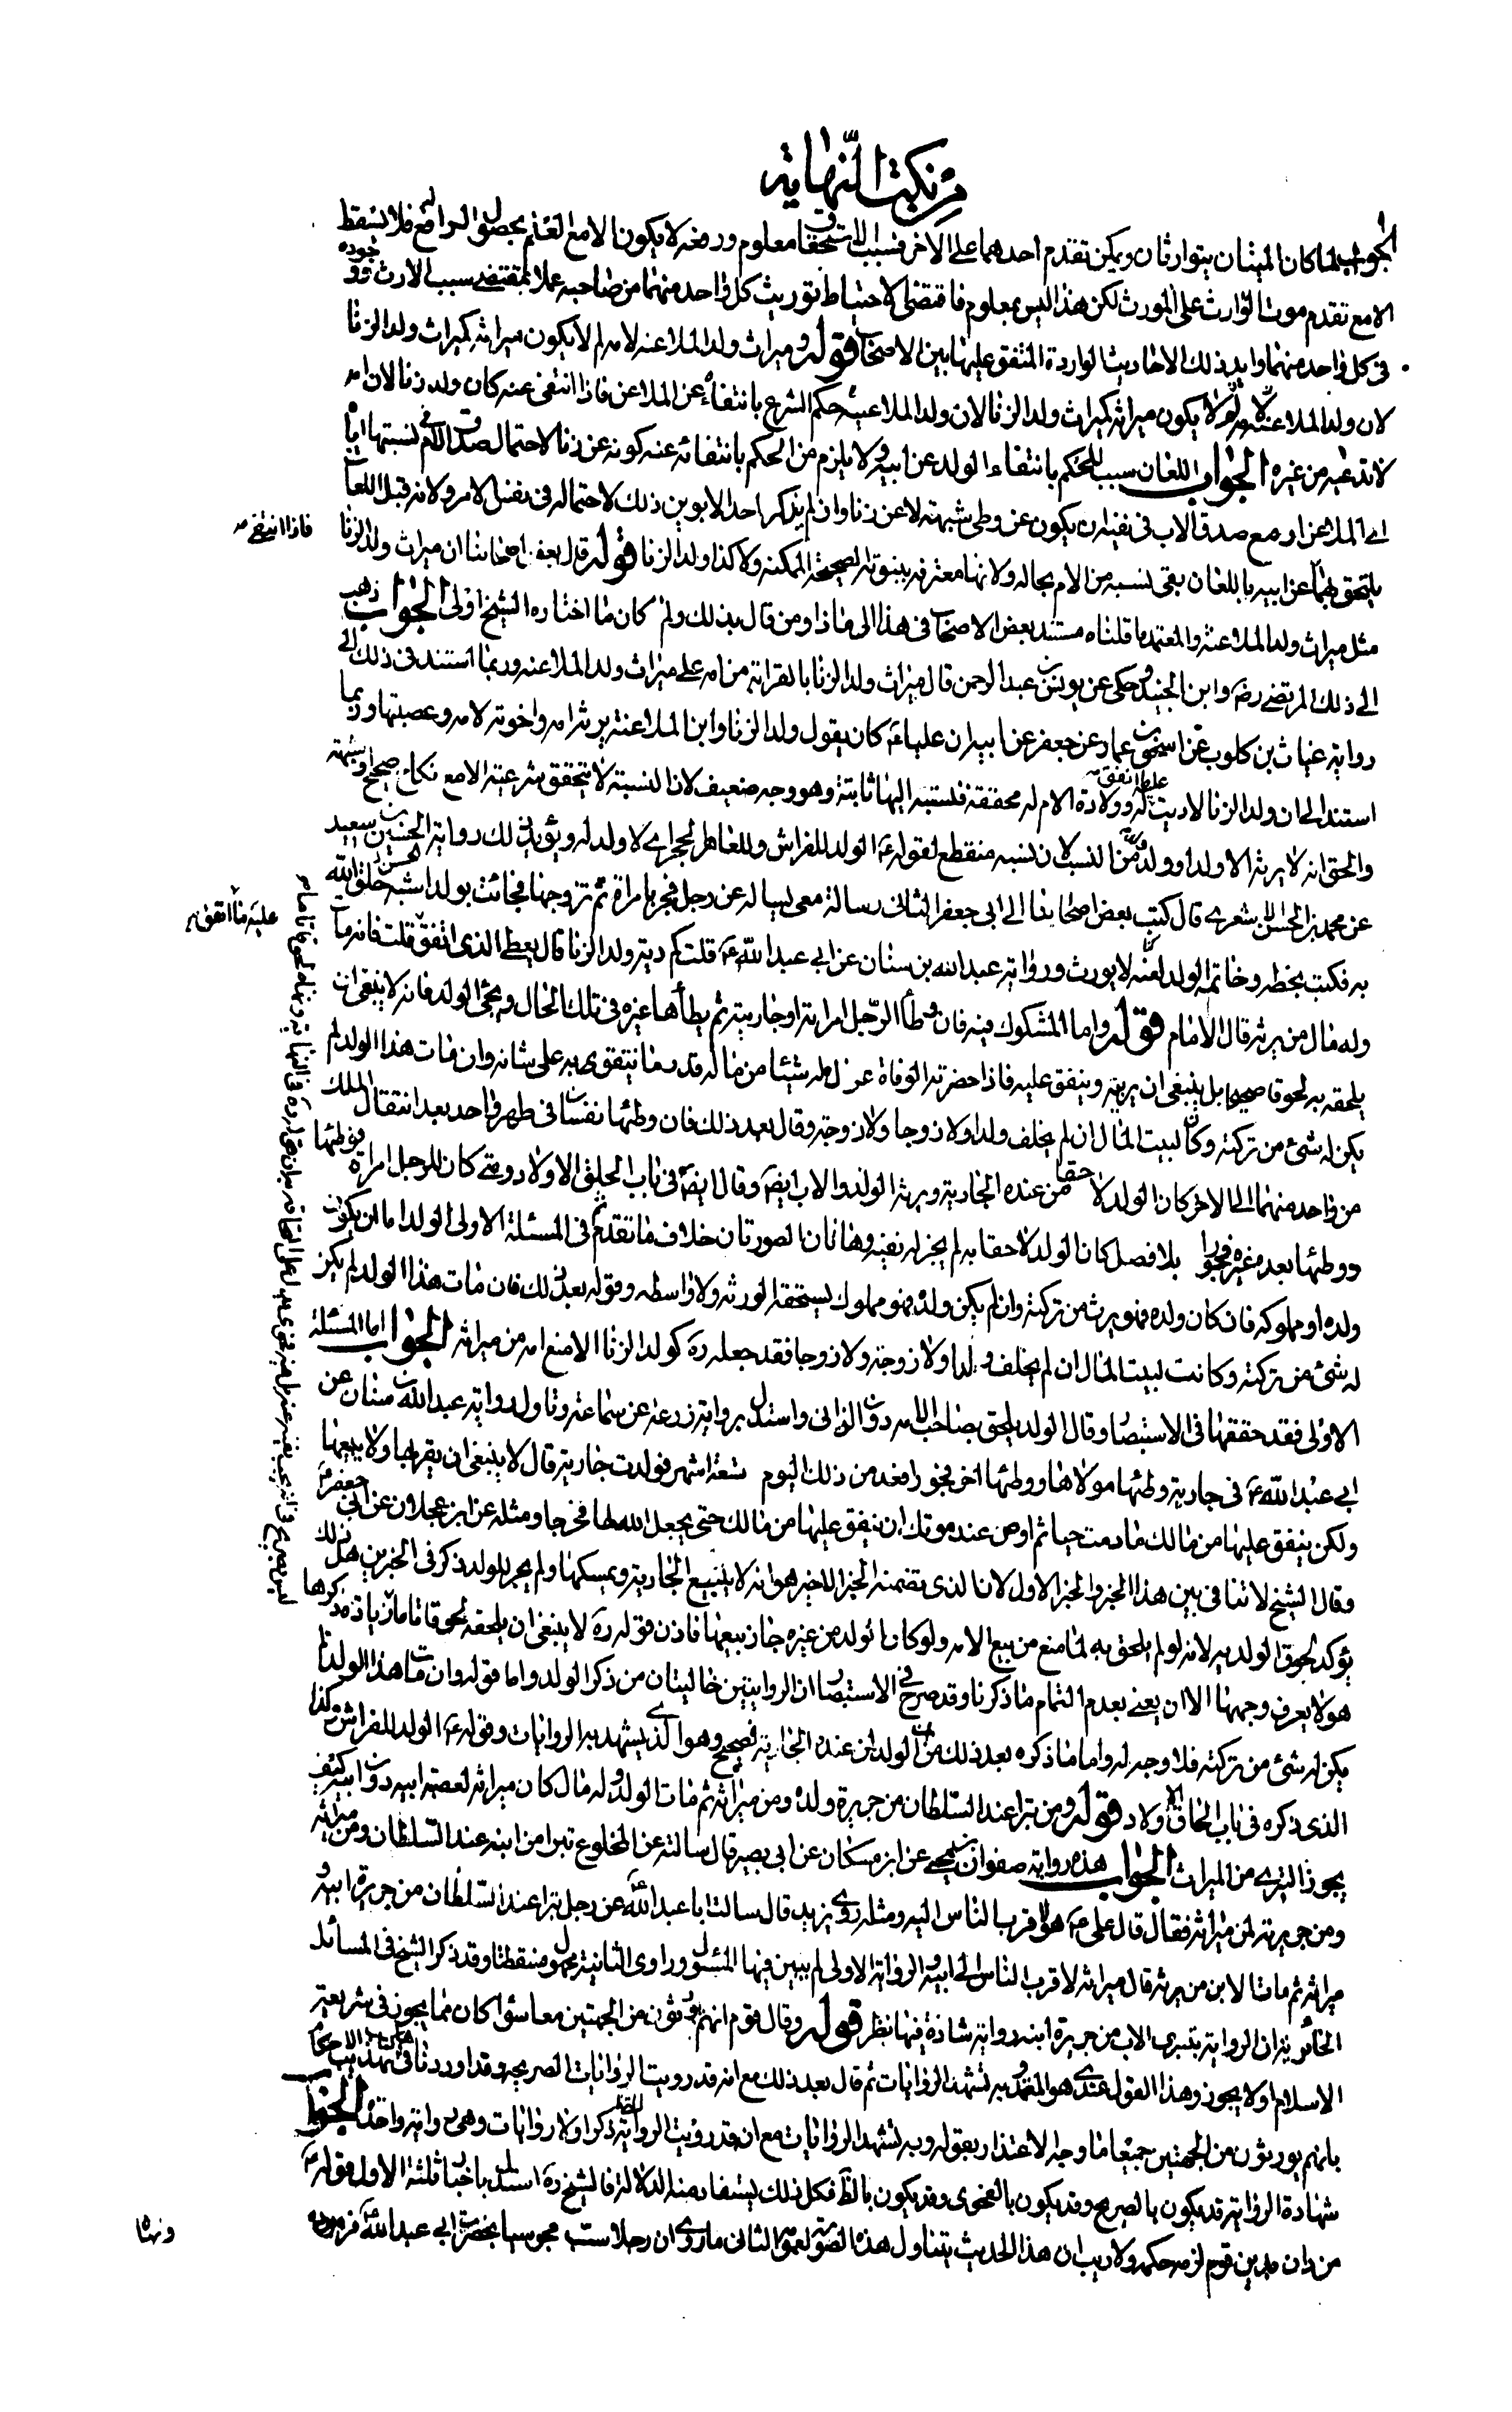 من نكت النهاية
الجواب لما كان الميتان يتوارثان ويمكن تقدم احدهما على الاخر فسبب الاستحقاق معلوم ورفعه لا يكون الا مع العلم بحصول الرافع فلا يسقط
الا مع تقدم موت الوارث على المورث لكن هذا ليس بمعلوم فاقتضى الاحتياط توريث كل واحد منهما من صاحبه عملا بمقتضى سبب الارث ووجوده
في كل واحد منهما وايد ذلك الاحاديث الواردة المتفق عليها بين الاصحاب قوله وميراث ولد الملاعنة لامه لم لا يكون ميراثه كميراث ولد الزنا
لان ولد الملاعنة يكون ميراثه كميراث ولد الزنا لان ولد الملاعنة حكم الشرع بانتفائه عن الملاعن فاذا انتفى عنه كان ولد زنا لان امه
لا تدعيه من غيره الجواب اللعان سبب للحكم بانتفاء الولد عن ابيه ولا يلزم من الحكم بانتفائه عنه كونه عن زنا لاحتمال صدق الام في نسبتها اياه
الى الملاعن او مع صدق الاب في نفيه ان يكون عن وطي شبهة لا عن زنا وان لم يذكر احد الابوين ذلك لاحتماله في نفس الامر ولانه قبل اللعان
يلتحق بهما عن ابيه باللعان بقي نسبه من الام بحاله ولانها معترفة ببنوته الصحيحة الممكنة ولا كذا ولد الزنا قوله قال بعض اصحابنا ان ميراث ولد الزنا
فاذا انتفى مه
مثل ميراث ولد الملاعنة والمعتمد ما قلناه مستند بعض الاصحاب في هذا الى ماذا ومن قال بذلك ولم كان ما اختاره الشيخ اولى الجواب ذهب
الى ذلك المرتضى رضه وابن الجنيد وحكى عن يونس بن عبد الرحمن قال ميراث ولد الزنا بالقرابة من امه على ميراث ولد الملاعنة وربما استند في ذلك الى
رواية غياث بن كلوب عن اسحق بن عمار عن جعفر عن ابيه ان عليا ع كان يقول ولد الزنا وابن الملاعنة يرثه امه واخوته لامه وعصبتها وربما
استند الى ان ولد الزنا لا دية له وولادة الام له محققة فنسبته اليها ثابتة وهو وجه ضعيف لان النسبة لا تتحقق شرعية الا مع نكاح صحيح او شبهة
والحق انه لا يرثه الا ولد او ولد من النسب لان نسبه منقطع لقوله ع الولد للفراش وللعاهر الحجر اي لا ولد له ويؤيد ذلك رواية الحسين بن سعيد
عن محمد بن الحسن الاشعري قال كتب بعض اصحابنا الى ابي جعفر الثاني رسالة معي يساله عن رجل فجر بامراة ثم تزوجها فجائت بولد اشبه خلق الله
به فكتب بخطه وخاتمه الولد لغية لا يورث ورواية عبد الله بن سنان عن ابي عبد الله ع قلت كم دية ولد الزنا قال يعطى الذي انفق قلت فانه مات
عليه ما انفق
وله مال من يرثه قال الامام قوله واما المشكوك فيه فان وطأ الرجل امراته او جاريته ثم يطأها غيره في تلك الحال ويجئ الولد فانه لا ينبغي ان
يلحقه به لحوقا صحيحا بل ينبغي ان يربيه وينفق عليه فاذا حضرته الوفاة عزل له شيئا من ماله قدر ما يتقوى به على شانه وان مات هذا الولد لم
يكن له شئ من تركته وكان لبيت المال ان لم يخلف ولدا ولا زوجا ولا زوجة وقال بعد ذلك فان وطئها نفسان في طهر واحد بعد انتقال الملك
من واحد منهما الى الاخر كان الولد لاحقا من عنده الجارية ويرثه الولد والاب ايضه وقال ايضه في باب الحاق الاولاد ومتى كان للرجل امراة فوطئها
ووطئها بعده غيره فجورا بلا فصل كان الولد لاحقا به لم يجز له نفيه وهاتان الصورتان خلاف ما تقدم ثم في المسئلة الاولى الولد اما ان يكون
ولده او مملوكه فان كان ولده فهو يرث من تركته وان لم يكن ولده فهو مملوك يستحقه الورثة ولا واسطة وقوله بعد ذلك فان مات هذا الولد لم يكن
له شئ من تركته وكانت لبيت المال ان لم يخلف ولدا ولا زوجة ولا زوجا فقد جعله ره كولد الزنا الا منع امه من ميراثه الجواب اما المسئلة
الاولى فقد حققها في الاستبصار وقال الولد يلحق بصاحب الامة دون الزاني واستدل برواية زرعة عن سماعة وتاول رواية عبد الله بن سنان عن
ابي عبد الله ع في جارية وطئها مولاها ووطئها اخر فجورا من ذلك اليوم تسعة اشهر فولدت جارية قال لا ينبغي ان يقربها ولا يبيعها
ولكن ينفق عليها من مالك ما دمت حيا ثم اوص عند موتك ان ينفق عليها من مالك حتى يجعل الله لها مخرجا ومثله عن ابن عجلان عن ابي جعفر ع
وقال الشيخ لا تنافي بين هذا الخبر والخبر الاول لان الذي تضمنه الخبر الاخير هو انه لا يبيع الجارية ويمسكها ولم يجر للولد ذكر في الخبرين بل ذلك
يؤكد لحوق الولد به لانه لو لم يلحق به لما منع من بيع الامة ولو كان الولد من غيره جاز بيعها فاذن قوله ره لا ينبغي ان يلحقه لحوقا تاما زيادة ذكرها
هو لا يعرف وجهها الا ان يعني بعدم التمام ما ذكرنا وقد صرح في الاستبصار ان الروايتين خاليتان من ذكر الولد واما قوله وان مات هذا الولد لم
يكن له شئ من تركته فلا وجه له واما ما ذكره بعد ذلك من ان الولد لمن عنده الجارية فصحيح وهو الذي يشهد به الروايات وقوله ع الولد للفراش وكذا
الذي ذكره في باب الحاق الاولاد قوله ومن تبرا عند السلطان من جريرة ولده ومن ميراثه ثم مات الولد وله مال كان ميراثه لعصبة ابيه دون ابيه كيف
يجوز التبري من الميراث الجواب هذه رواية صفوان بن يحيى عن ابن مسكان عن ابي بصير قال سالته عن المخلوع تبرا من ابنه عند السلطان ومن ميراثه
ومن جريرته لمن ميراثه فقال قال علي ع هو لاقرب الناس اليه ومثله روى بريد قال سالت ابا عبد الله عن رجل تبرا عند السلطان من جريرة ابنه و
ميراثه ثم مات الابن من يرثه قال ميراثه لاقرب الناس الى ابيه والرواية الاولى لم يبين فيها المسئول وراوي الثانية مجهول فسقطتا وقد ذكر الشيخ في المسائل
الحائرية ان الرواية بتبري الاب من جريرة ابنه رواية شاذة فيها نظر قوله وقال قوم انهم يورثون من الجهتين معا سواء كان مما يجوز في شريعة
الاسلام او لا يجوز وهذا القول عندي هو المعتمد وبه تشهد الروايات ثم قال بعد ذلك مع انه قد رويت الروايات الصريحة وقد اوردناها في كتاب تهذيب الاحكام
بانهم يورثون من الجهتين جميعا ما وجه الاعتذار بقوله وبه تشهد الروايات مع انه قد رويت الرواية ذكر اولا روايات وهي رواية واحدة الجواب
شهادة الرواية قد يكون بالصريح وقد يكون بالفحوى وقد يكون بالظ فكل ذلك يستفاد منه الدلالة فالشيخ ره استدل باخبار ثلثة الاول قوله ع
من دان بدين قوم لزمه حكمه ولا ريب ان هذا الحديث يتناول هذه الصورة لعمومه الثاني ما روي ان رجلا سب مجوسيا بحضرة ابي عبد الله ع فزبره
ونهاه